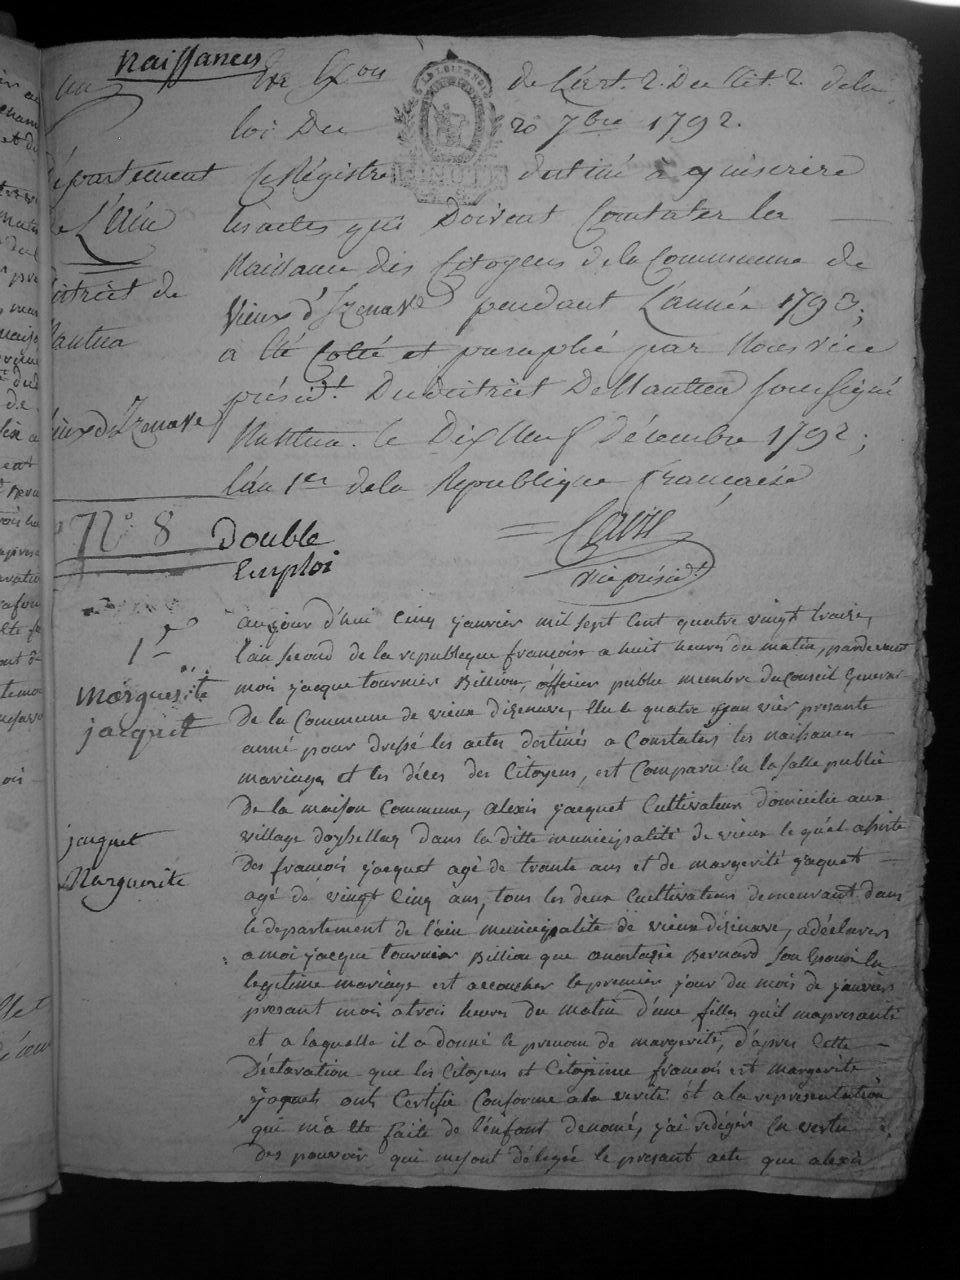 Naissances
En Exon de l'art. 2. Du tit. 2 de la
loi Du 20 7bre 1792.
Département
de L'Ain
District de
Nantua
Vieux d'Izenave
Ce Registre destiné à y inscrire
les actes qui Doivent Constater les
Naissance des Citoyens de la Commune de
Vieux d'Izenave pendant L'année 1793;
a été Colté et paraphé par Nous vice
présidt. Du district De Nantua soussigné
Nantua. le Dix Neuf Décembre 1792;
l'an 1er de la République française
N° 8
Double
Emploi
vice présidt
1er
Marguerite
jacquet
jacquet
Marguerite
aujour d'hui cinq janvier mil sept cent quatre vingt traize,
l'an second de la republique francoise a huit heures du matin, pardevant
moi jacque tournier Billion, officier public membre du Conseil General
De la Commune de vieux dizenave, Elu le quatre janvier presante
anné pour dressé les actes destinés a Constaters les naissances
mariages et les déces des Citoyens, est Comparu en la salle public
De la maison Commune, alexis jacquet Cultivateur domicilié aux
village doysellas dans la ditte municipalité de vieux le quel assisté
Des francois jacquet agé de trante ans et de margerité jaquet
agé de vingt Cinq ans, tous les deux Cultivateurs demeurant dans
le departement de l'ain municipalité de vieux dizinave, a déclarer
a moi jacque tournier Billion que anastazie Bernard son Epouse En
legitime mariage est accoucher le premier jour du mois de janvier
presant mois a trois heures du matin d'une filles qu'il ma presanté
et a laquelle il a donné le prenom de margerité, d'apres Cette
Déclaration que les Citoyens et Citoyenne francois est margerite
jaquet onts Certifié Conforme a la verité et a la representation
qui m'a été faite de l'enfant denomé, j'ai redigér En vertu
Des pouvoir qui me sont délegée le presant acte que alexis